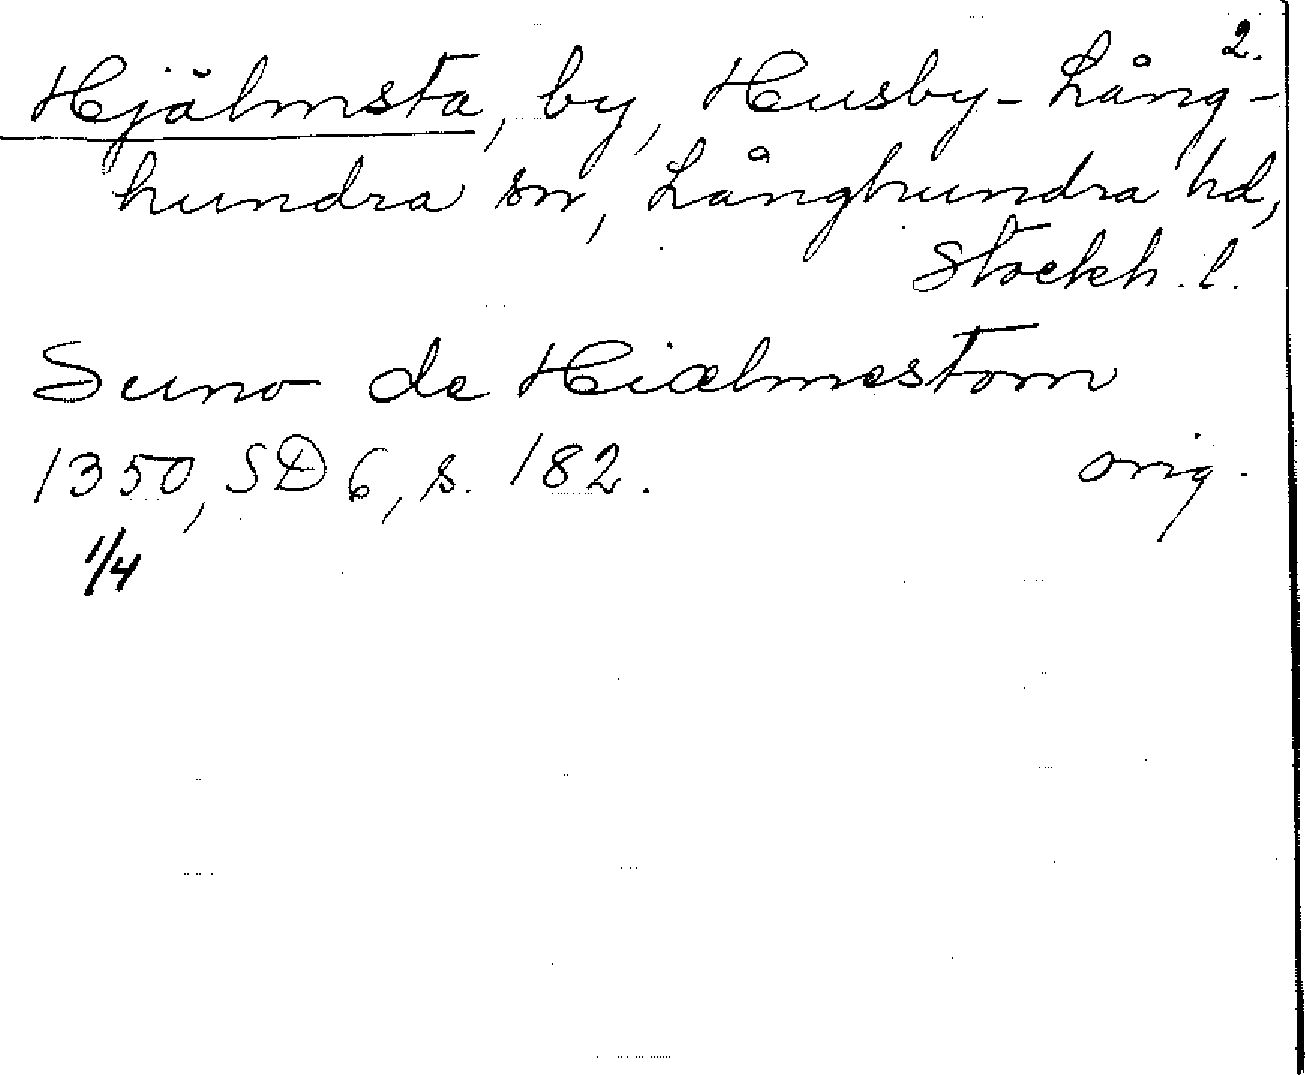 2.
Hjälmsta, by, Husby-Lång-
hundra sn, Långhundra hd,
Stockh. l.
Suno de Hiælmestom
1350, SD 6, s. 182. orig.
1/4